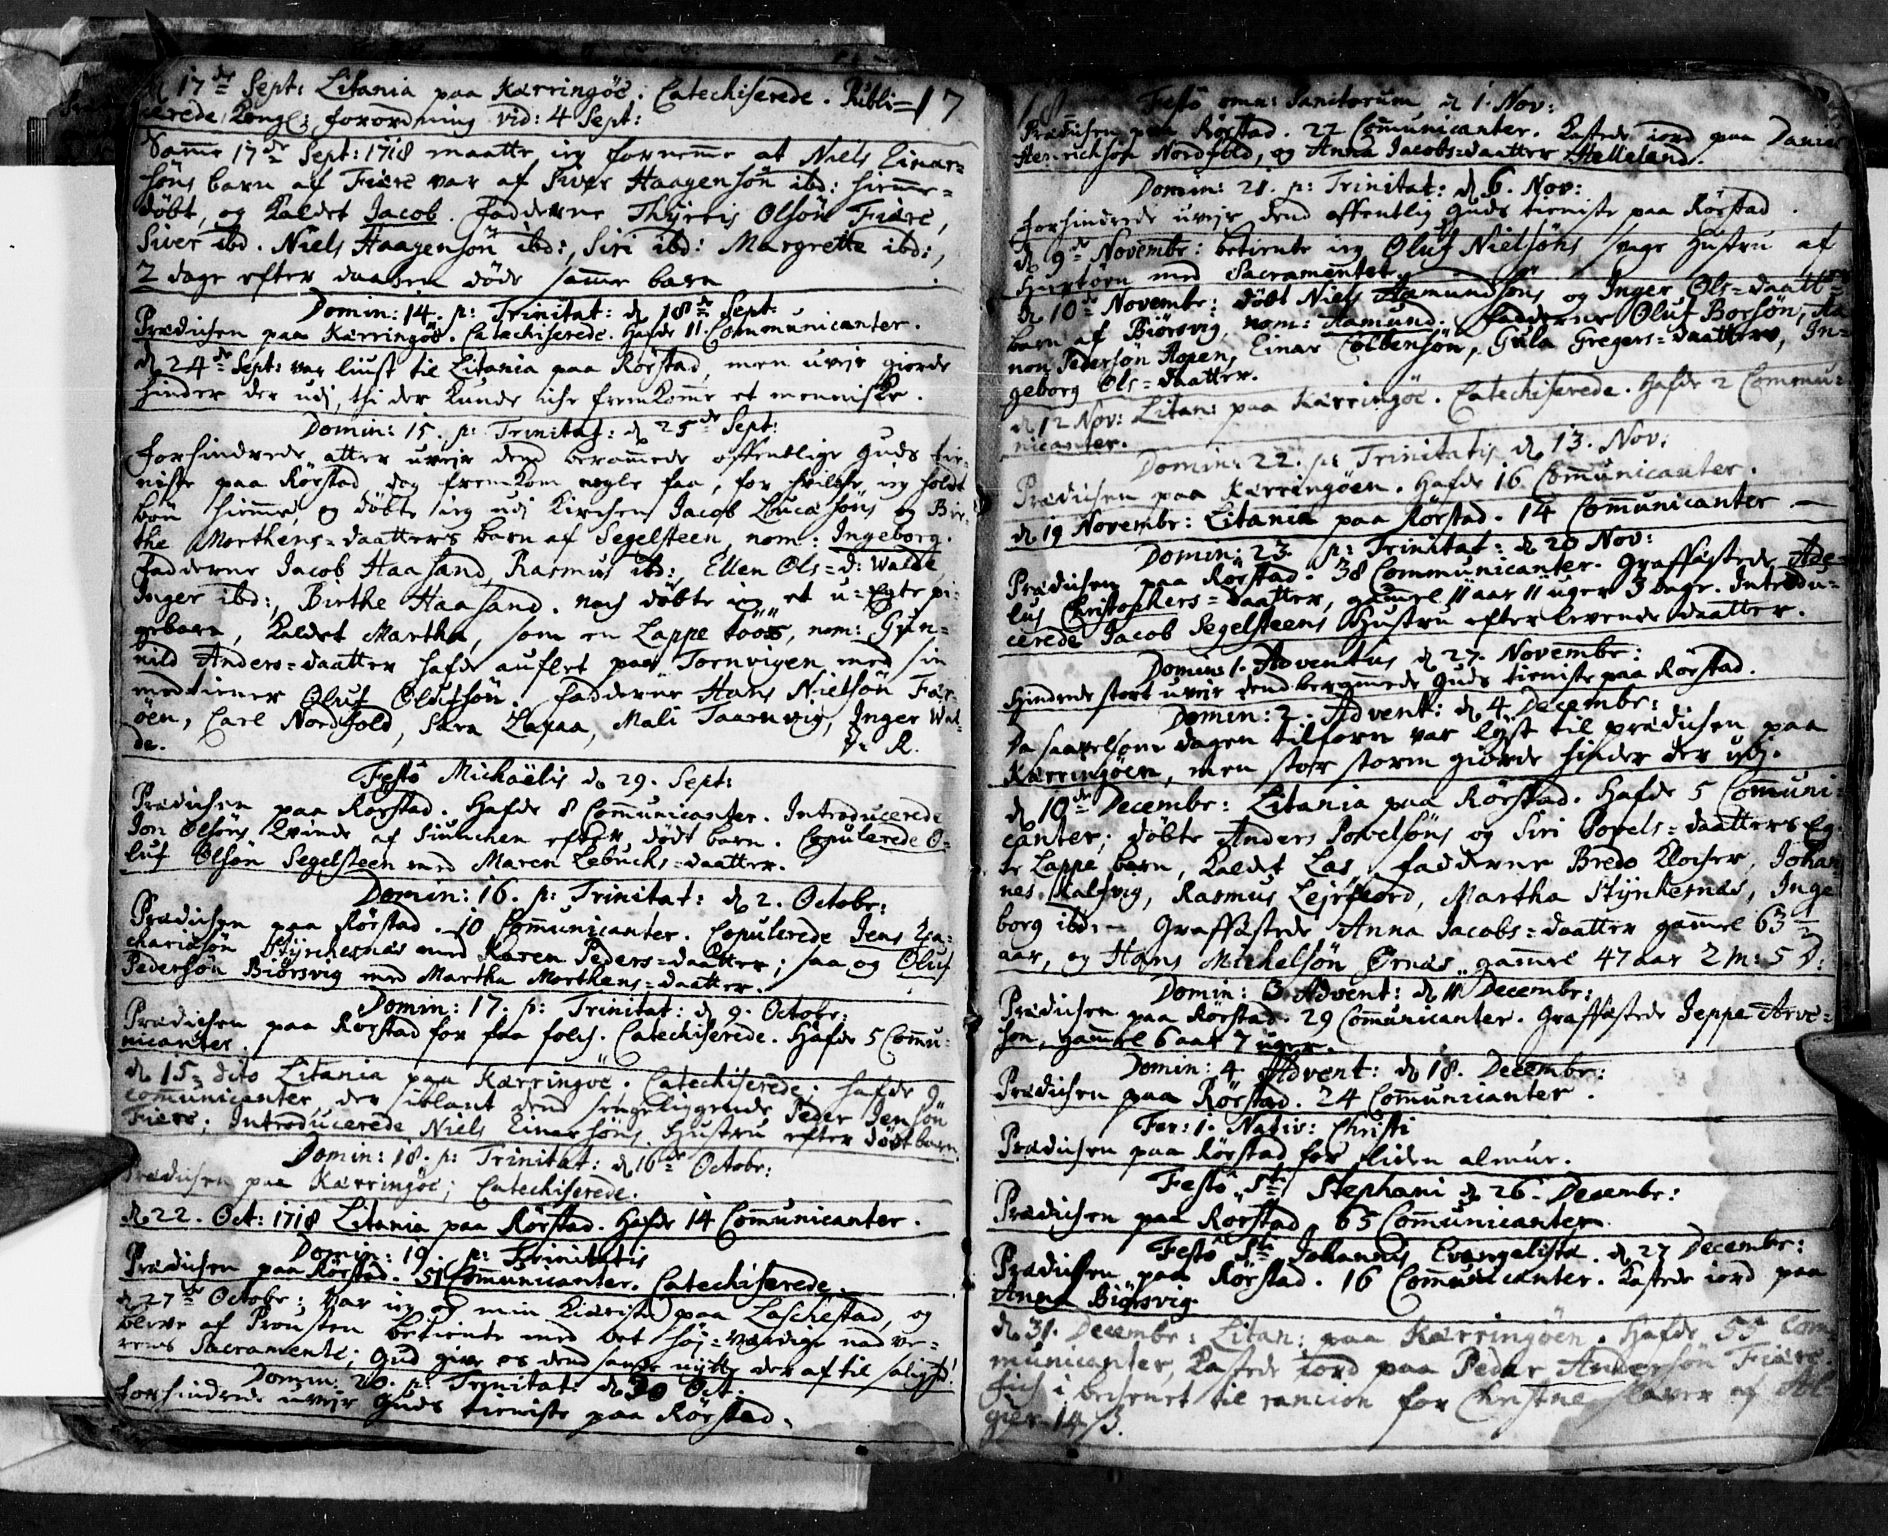 d 17de Sept: Litania paa Kærringöe. Catechiserede. Publi= 17
cerede Kongl: forordning vid: 4 Sept:
Samme 17de Sept: 1718 maatte ieg fornemme at Niels Einar=
söns barn af Fiære var af Siver Haagensön ibd: hiemme=
döbt, og kaldet Jacob. Fadderne Thyrris Olsön Fiære,
Siver ibd. Niels Haagensön ibd:, Siri ibd: Margrette ibd:,
2 dage efter daaben döde samme barn
Domin: 14. p: Trinitat: d 18de Sept:
Prædichen paa Kærringöe. Catechiserede. Hafde 11. Communicanter.
d 24de Sept: var liust til Litania paa Rörstad, men uveir giorde
hinder der udi, thi der kunde iche fremkomme et menniske.
Domin: 15. p: Trinitat: d 25de Sept:
Forhindrede atter uveir dend berammede offentlige Guds tie=
niste paa Rörstad dog fremkom nogle faa, for hvilche ieg holdt
bön hiemme, og döbte ieg udi Kirchen Jacob Lucasöns og Bir=
the Morthens=daatters barn af Segelsteen, nom: Ingeborg.
Fadderne Jacob Haasand, Rasmus ibd: Ellen Ols=d: Walde,
Inger ibd:, Birthe Haasand. noch döbte ieg et u=egte pi=
gebarn, kaldet Martha, som en Lappe töös, nom: Gun=
nild Anders=daatter hafde auflet paa Tornvigen med sin
medtiener Oluf Olufsön. Fadderne Hans Nielsön Fær=
öen, Carl Nordfold, Sara Laxaa, Mali Taarnvig, Inger Wal=
de. V: R.
Festo Michaëlis d 29. Sept:
Prædichen paa Rörstad. Hafde 8 Communicanter. Introducerede
Jon Olsöns Qvinde af efter dödt barn. Copulerede O=
luf Olsön Segelsteen med Maren Lebuchs=daatter.
Domin: 16. p: Trinitat: d 2. Octobr:
Prædichen paa Rörstad. 10 Communicanter. Copulerede Jens Za=
chariasön Styrchesnæs med Karen Peders=daatter; saa og Oluf
Pedersön Biörsvig med Martha Morthens=daatter.
Domin: 17. p: Trinitat: d 9. Octobr:
Prædichen paa Rörstad for faa folch. Catechiserede. Hafde 5 Commu=
nicanter.
d 15. dito Litania paa Kærringöe. Catechiserede; hafde 9
communicanter, der iblant dend sengeliggende Peder Jensön
Fiære; Introducerede Niels Einarsöns Hustru efter dödt barn.
Domin: 18. p: Trinitat: d 16de Octobr:
Prædichen paa Kærringöe; Catechiserede.
d 22. Oct: 1718 Litania paa Rörstad. Hafde 14 Communicanter.
Domin: 19. p: Trinitatis
Prædichen paa Rörstad. 51 Communicanter. Catechiserede.
d 27de Octobr: var ieg og min Kiæriste paa Laschestad, og
bleve af Prousten betiente med det höj=værdige nadve=
rens Sacramente; Gud give os dend sande nytte der af til salighed!
Domin: 20. p: Trinitat: d 30 Oct:
Forhindrede uveir Guds tieniste paa Rörstad.
Festo omn: Sanctorum d 1. Nov:
Prædichen paa Rörstad. 22 Communicanter. Kastede iord paa Daniel
Henrichsön Nordfold, og Anna Jacobs=daatter Helleland.
Domin: 21. p: Trinitat: d 6. Nov:
Forhindrede uveir dend offentlig Guds tieniste paa Rörstad.
d 9de Novembr: betiente ieg Oluf Nielsöns svage Hustru af
med Sacramentet.
d 10de Novembr: döbt Niels Aamundsöns og Inger Ols=daatt=
barn af Biörsvig, nom: Aamund. Fadderne Oluf Borsön, Aa=
non Pedersön Hopen, Einar Colbensön, Gula Gregers=daatters, In=
geborg Ols=daatter.
d 12 Nov: Litan: paa Kærringöe. Catechiserede. Hafde 2 Commu=
nicanter.
Domin: 22. p: Trinitatis d 13. Nov:
Prædichen paa Kærringöen. Hafde 16 Communicanter.
d 19 Novembr: Litania paa Rörstad. 14 Communicanter
Domin: 23. p: Trinitat: d 20 Nov:
Prædichen paa Rörstad. 38 Communicanter. Graffæstede Ade=
lus Christophers=daatter, gammel 11 aar 11 uger 3 dage. Introdu=
cerede Jacob Segelsteens Hustru efter levende daatter.
Domin: 1. Adventus d 27. Novembr:
Hindrede stort uveir dend berammede Guds tieniste paa Rörstad.
Domin: 2. Advent: d 4. Decembr:
Da saavelsom dagen tilforn var lyst til prædichen paa
Kærringöen, men stor storm giorde hinder der udj.
d 10de Decembr: Litania paa Rörstad. Hafde 5 Communi=
canter; döbte Anders Povelsöns og Siri Povels=daatters Eg=
te Lappe barn, kaldet Las. Fadderne Bredo Kloster, Johan=
nes Kalsvig, Rasmus Lejrfiord, Martha Styrkesnæs, Inge
borg ibd: Graffæstede Anna Jacobs=daatter gammel 63
aar, og Hans Michelsön Örnæs, gammel 47 aar 2 m: 5 D:
Domin: 3 Advent: d 11 Decembr:
Prædichen paa Rörstad. 29 Communicanter. Graffæstede Jeppe Arve=
sön, gammel 6 aar 7 uger.
Domin: 4. Advent: d 18. Decembr:
Prædichen paa Rörstad. 24 Communicanter.
Fer: 1. Nativ: Christi
Prædichen paa Rörstad for liden almue.
Festo Sti Stephani d 26. Decembr:
Prædichen paa Rörstad 65 Communicanter.
Festo Sti Johannis Evangelistæ. d 27 Decembr:
Prædichen paa Rörstad. 16 Communicanter. Kastede iord paa
Anna Biörsvig
d 31. Decembr: Litan: paa Kærringöen. Hafde 55 Com=
municanter, Kastede iord paa Peder Andersön Fiære.
Fich i bechenet til rancion for Christne slaver af Al=
gier 14 ß.